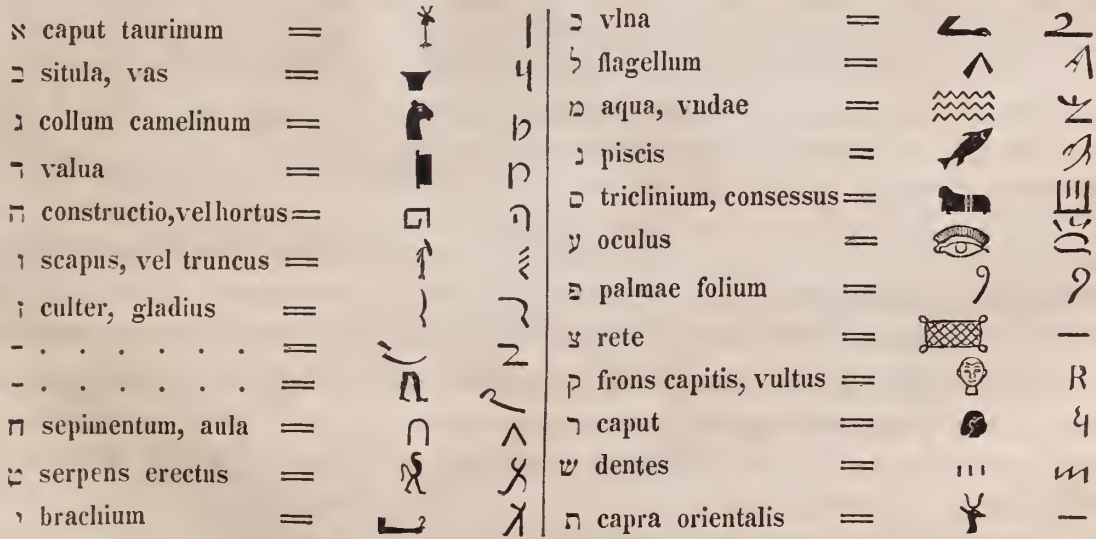 א caput taurinum =
ב situla, vas =
ג collum camelinum =
ד valua =
ה constructio, vel hortus =
ו scapus, vel truncus =
ז culter, gladius =
- . . . . . . =
- . . . . . . =
ח sepimentum, aula =
ט serpens erectus =
י brachium =
כ vlna =
ל flagellum =
מ aqua, vndae =
נ piscis =
ס triclinium, consessus =
ע oculus =
פ palmae folium =
צ rete = —
ק frons capitis, vultus =
ר caput =
ש dentes =
ת capra orientalis = —